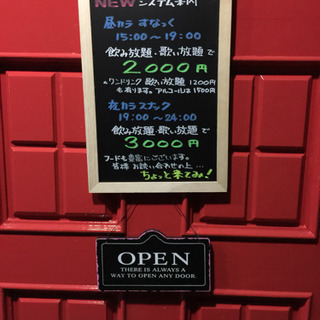 NEW システム案内
昼カラ すなっく
15:00～19:00
飲み放題・歌い放題で
2000円
*ワンドリンク 歌い放題 1200円
も有ります。アルコールは1500円
夜カラスナック
19:00～24:00
飲み放題・歌い放題で
3000円
フードも豊富にございます。
皆様 お誘い合わせの上…
ちょっと来てみ!
OPEN
THERE IS ALWAYS A
WAY TO OPEN ANY DOOR.